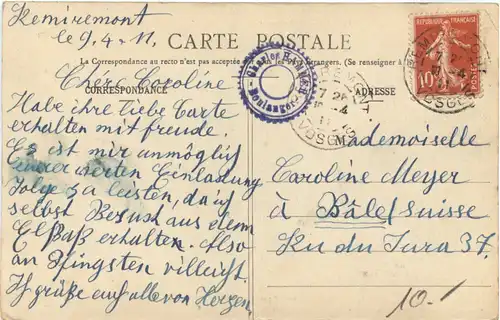 Remiremont
le 9.4-11.
CARTE POSTALE
La Correspondance au recto n'est pas acceptée par tous les pays étrangers. (Se renseigner à la
CORRESPONDANCE
ADRESSE
Chère Caroline
Habe ihre liebe Carte
erhalten mit freude.
Es ist mir unmöglich
eurer werten Einladung
folge zu leisten, da ich
selbst Besuch aus dem
Elsaß erhalten. Also
an Pfingsten villeicht.
Ich grüße euch alle von Herzen.
Boulanger
REPUBLIQUE FRANÇAISE
10
POSTES
VOSGES
VOSGES
Mademoiselle
Caroline Meyer
à Bâle/Suisse
Ru du Jura 37.
10.-